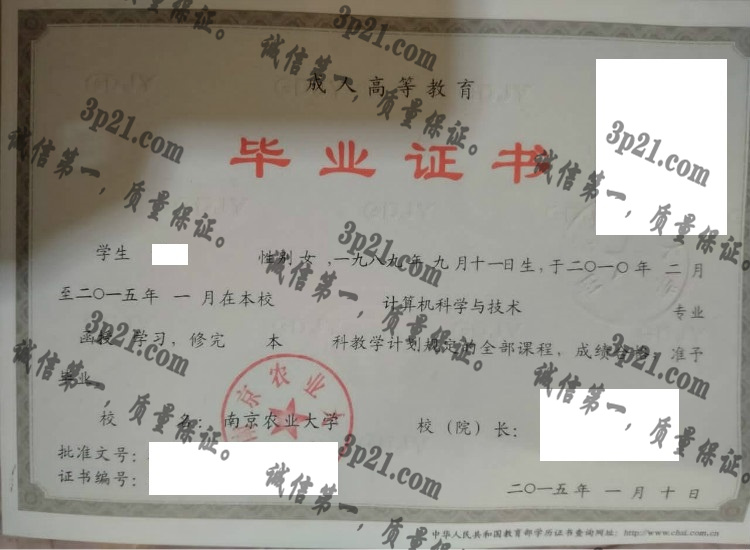 成人高等教育
毕业证书
学生 性别 女 ,一九八九年 九 月十一日生,于二〇一〇年 二 月
至二〇一五年 一 月在本校 计算机科学与技术 专业
函授 学习,修完 本 科教学计划规定的全部课程,成绩合格,准予
毕业。
校 名: 南京农业大学 校(院)长:
批准文号:
证书编号:
二〇一五年 一 月 十 日
中华人民共和国教育部学历证书查询网址: http://www.chsi.com.cn
南京农业大
3p21.com
诚信第一,质量保证。
3p21.com
诚信第一,质量保证。
3p21.com
诚信第一,质量保证。
3p21.com
诚信第一,质量保证。
3p21.com
诚信第一,质量保证。
3p21.com
诚信第一,质量保证。
3p21.com
诚信第一,质量保证。